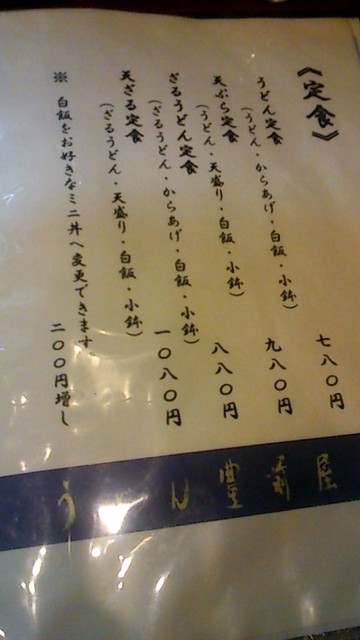 《定食》
うどん定食
(うどん・からあげ・白飯・小鉢)
七八〇円
天ぷら定食
(うどん・天盛り・白飯・小鉢)
九八〇円
ざるうどん定食
(ざるうどん・からあげ・白飯・小鉢)
八八〇円
天ざる定食
(ざるうどん・天盛り・白飯・小鉢)
一〇八〇円
※ 白飯をお好きなミニ丼へ変更できます。
二〇〇円増し
うどん 豊前屋